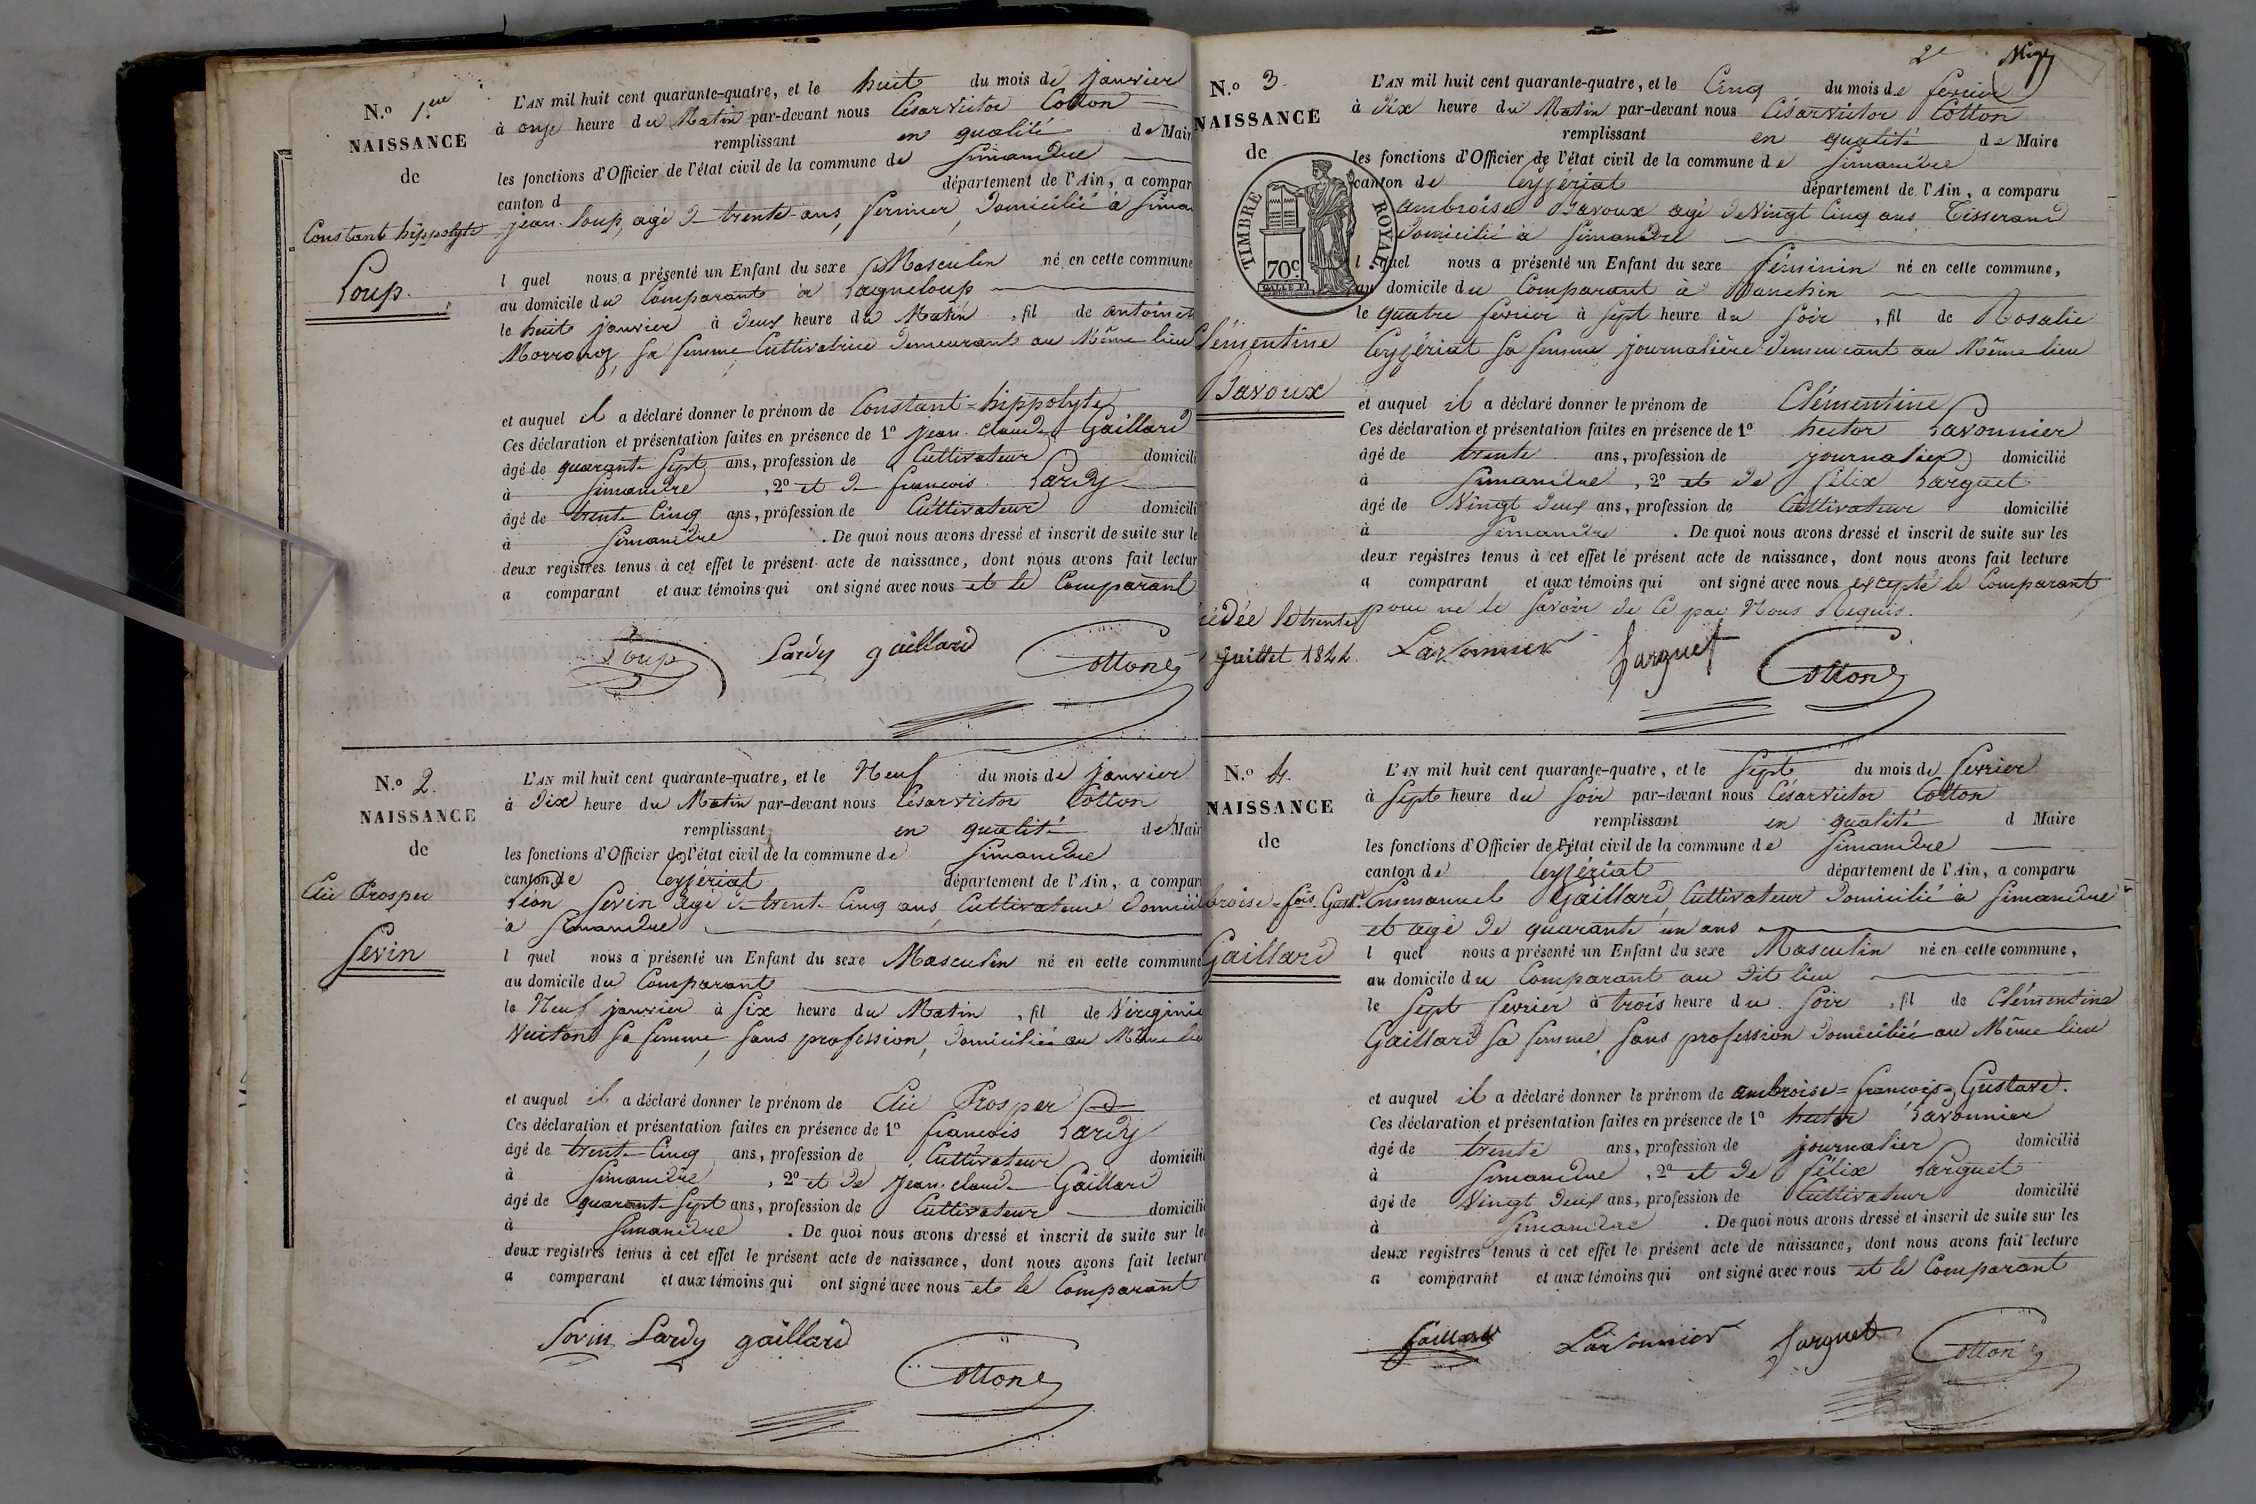 N.o 1.ere
NAISSANCE
de
Constant hippolyte
Loup.
L'AN mil huit cent quarante-quatre, et le huit du mois de janvier
à onze heure du Matin par-devant nous César victor Cotton
remplissant en qualité de Mair
les fonctions d'Officier de l'état civil de la commune de Simandre
canton d département de l'Ain, a compar
jean Loup, agé de trente ans, fermier, Domicilié à Sima
l quel nous a présenté un Enfant du sexe Masculin né en cette commune
au domicile du Comparant à Lagneloup
le huit janvier à deux heure du Matin, fil de antoinet
sa femme Cultivatrice demeurant au Même lieu
et auquel il a déclaré donner le prénom de Constant=hippolyte
Ces déclaration et présentation faites en présence de 1o jean claude Gaillard
âgé de quarante sept ans, profession de Cultivateur domicili
à Simandre, 2o et de francois Lardy
âgé de trente Cinq ans, profession de Cultivateur domicili
à Simandre. De quoi nous avons dressé et inscrit de suite sur le
deux registres tenus à cet effet le présent acte de naissance, dont nous avons fait lectur
a comparant et aux témoins qui ont signé avec nous et le Comparant
Loup Lardy gaillard Cotton
N.o 2.
NAISSANCE
de
Elie Prosper
Sevin
L'AN mil huit cent quarante-quatre, et le Neuf du mois de janvier
à Dix heure du Matin par-devant nous César victor Cotton
remplissant en qualité de Mair
les fonctions d'Officier de l'état civil de la commune de Simandre
canton de Ceyzériat département de l'Ain, a compar
Léon Sevin agé de trente Cinq ans Cultivateur domicil
à Simandre
l quel nous a présenté un Enfant du sexe Masculin né en cette commune
au domicile du Comparant
le Neuf janvier à Six heure du Matin, fil de Virginie
Vuiton sa femme sans profession, domiciliée au Même lie
et auquel il a déclaré donner le prénom de Elie Prosper
Ces déclaration et présentation faites en présence de 1o francois Lardy
âgé de trente Cinq ans, profession de Cultivateur domicili
à Simandre, 2o et de jean claude Gaillard
âgé de quarante Sept ans, profession de Cultivateur domicili
à Simandre. De quoi nous avons dressé et inscrit de suite sur le
deux registres tenus à cet effet le présent acte de naissance, dont nous avons fait lectur
a comparant et aux témoins qui ont signé avec nous et le Comparant
Sevin Lardy gaillard Cotton
2e
N.o 3.
NAISSANCE
de
TIMBRE ROYAL
70c
Clémentine
Bavoux
cédée le trente
Juillet 1844.
L'AN mil huit cent quarante-quatre, et le Cinq du mois de fevrier
à Dix heure du Matin par-devant nous César victor Cotton
remplissant en qualité de Maire
les fonctions d'Officier de l'état civil de la commune de Simandre
canton de Ceyzériat département de l'Ain, a comparu
ambroise Bavoux agé de Vingt Cinq ans Tisserand
domicilié à Simandre
l quel nous a présenté un Enfant du sexe féminin né en cette commune,
au domicile du Comparant à Banchin
le quatre fevrier à Sept heure du Soir, fil de Rosalie
Ceyzériat sa femme journalière demeurant au Même lieu
et auquel il a déclaré donner le prénom de Clémentine
Ces déclaration et présentation faites en présence de 1o hector Lavonnier
âgé de trente ans, profession de journalier domicilié
à Simandre, 2o et de félix Larguet
âgé de Vingt deux ans, profession de Cultivateur domicilié
à Simandre. De quoi nous avons dressé et inscrit de suite sur les
deux registres tenus à cet effet le présent acte de naissance, dont nous avons fait lecture
a comparant et aux témoins qui ont signé avec nous excepté le Comparant
pour ne le Savoir de ce par Nous Requis.
Lavonnier Larguet Cotton
N.o 4.
NAISSANCE
de
broise=fois Gust.
Gaillard
L'AN mil huit cent quarante-quatre, et le Sept du mois de fevrier
à Sept heure du Soir par-devant nous César victor Cotton
remplissant en qualité d Maire
les fonctions d'Officier de l'état civil de la commune de Simandre
canton de Ceyzériat département de l'Ain, a comparu
Emmanuel Gaillard, Cultivateur Domicilié à Simandre
et agé de quarante un ans
l quel nous a présenté un Enfant du sexe Masculin né en cette commune,
au domicile du Comparant au dit lieu
le Sept fevrier à trois heure du Soir, fil de Clémentine
Gaillard Sa femme, Sans profession Domiciliée au Même lieu
et auquel il a déclaré donner le prénom de ambroise=francois=Gustave.
Ces déclaration et présentation faites en présence de 1o hector Lavonnier
âgé de trente ans, profession de journalier domicilié
à Simandre, 2o et de félix Larguet
âgé de Vingt deux ans, profession de Cultivateur domicilié
à Simandre. De quoi nous avons dressé et inscrit de suite sur les
deux registres tenus à cet effet le présent acte de naissance, dont nous avons fait lecture
a comparant et aux témoins qui ont signé avec nous et le Comparant
Gaillard Lavonnier Larguet Cotton